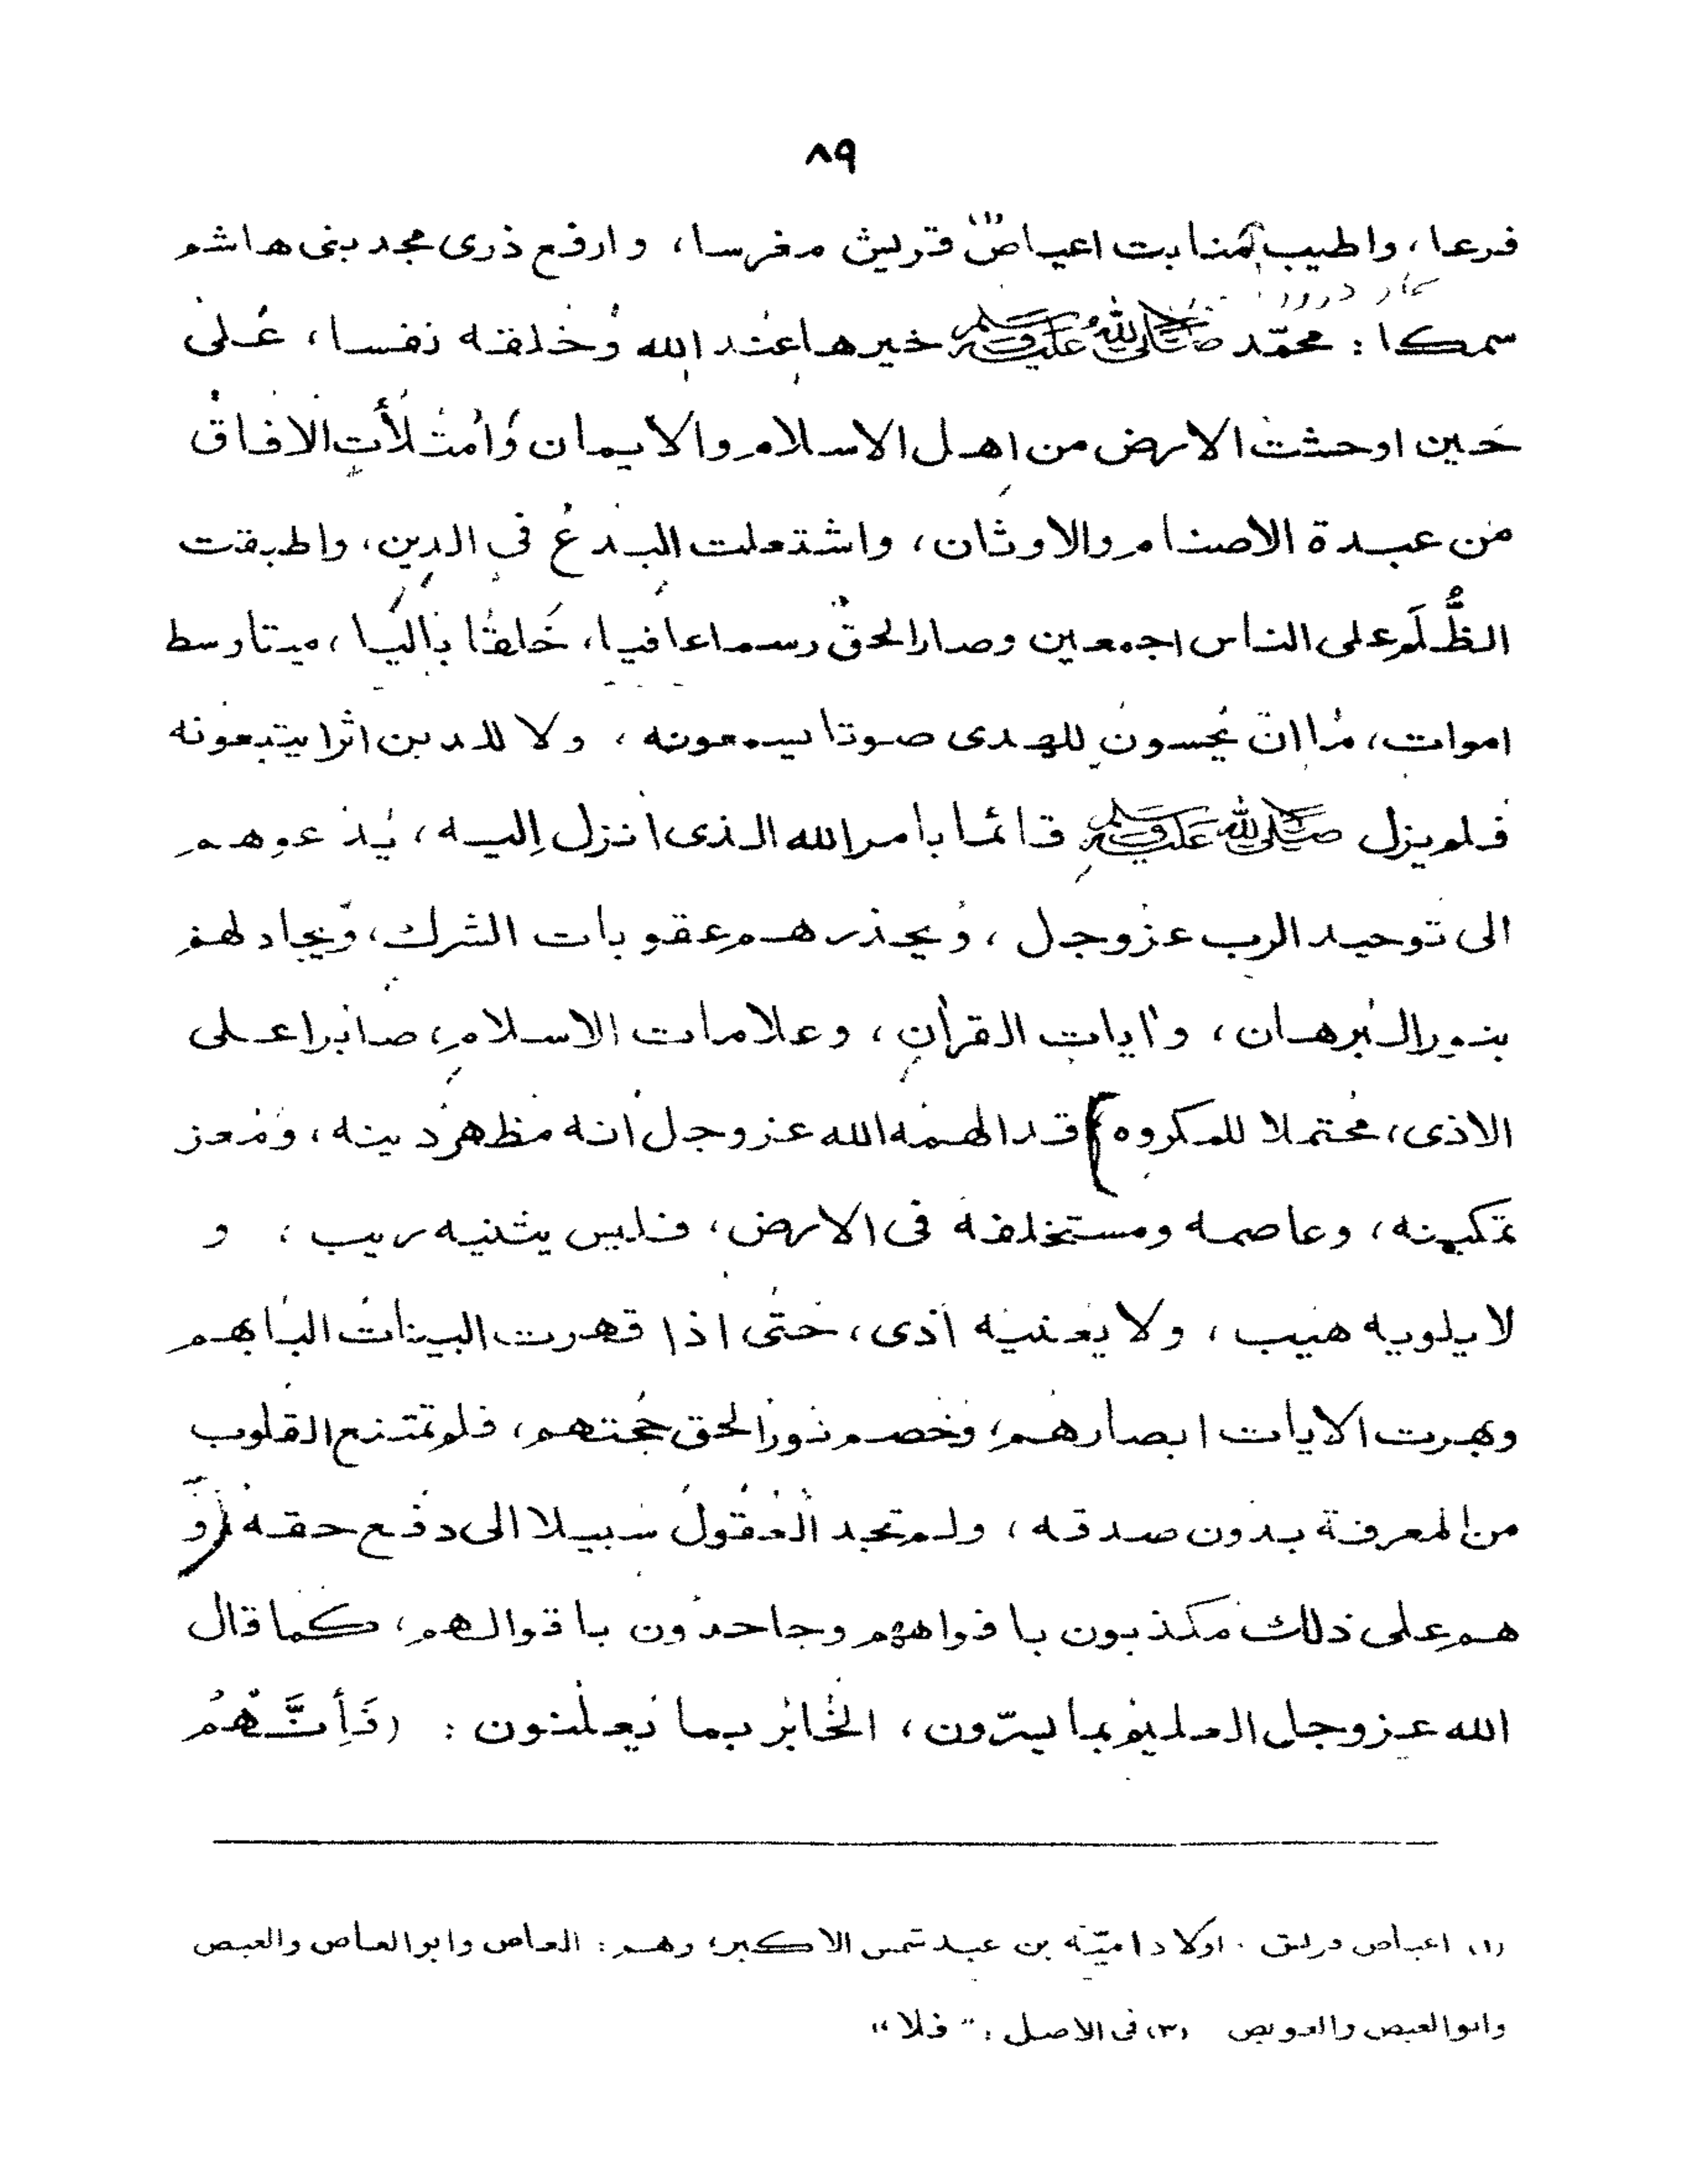 ٨٩
فرعا، واطيب منابت اعياص (١) قريش مغرسا، وارفع ذرى مجد بنى هاشم
سمكا: محمّد ﷺ خيرها عند الله وخلقه نفسا، على
حين اوحشت الارض من اهل الاسلام والايمان وامتلأت الافاق
من عبدة الاصنام والاوثان، واشتعلت البدع فى الدين، واطبقت
الظُّلَم على الناس اجمعين وصار الحق رسما عافيا، خَلقا باليا، ميتا وسط
اموات، ما ان يحسون للهدى صوتا يسمعونه، ولا للدين اثرا يتبعونه
فلم يزل ﷺ قائما بامر الله الذى انزل اليه، يدعوهم
الى توحيد الرب عزوجل، ويحذرهم عقوبات الشرك، ويجادلهم
بنور البرهان، وايات القران، وعلامات الاسلام، صابرا على
الاذى، محتملا للمكروه} قد الهمه الله عزوجل انه مظهر دينه، ومعز
تمكينه، وعاصمه ومستخلفه فى الارض، فليس يثنيه ريب، و
لا يلويه هيب، ولا يعنيه أذى، حتى اذا قهرت البينات البابهم
وبهرت الايات ابصارهم، وخصم نور الحق حجتهم، فلم تمتنع القلوب
من المعرفة بدون صدقه، ولم تجد العقول سبيلا الى دفع حقه (و
هم على ذلك مكذبون بافواههم وجاحدون باقوالهم، كما قال
الله عزوجل العليم بما يسرّون، الخابر بما يعلنون: (فَأِنَّهُمْ
(١) اعياص قريش . اولاد اميّة بن عبد شمس الاكبر، وهم: العاص وابو العاص والعيص
وابو العيص والعويص (٣) فى الاصل: "فلا"